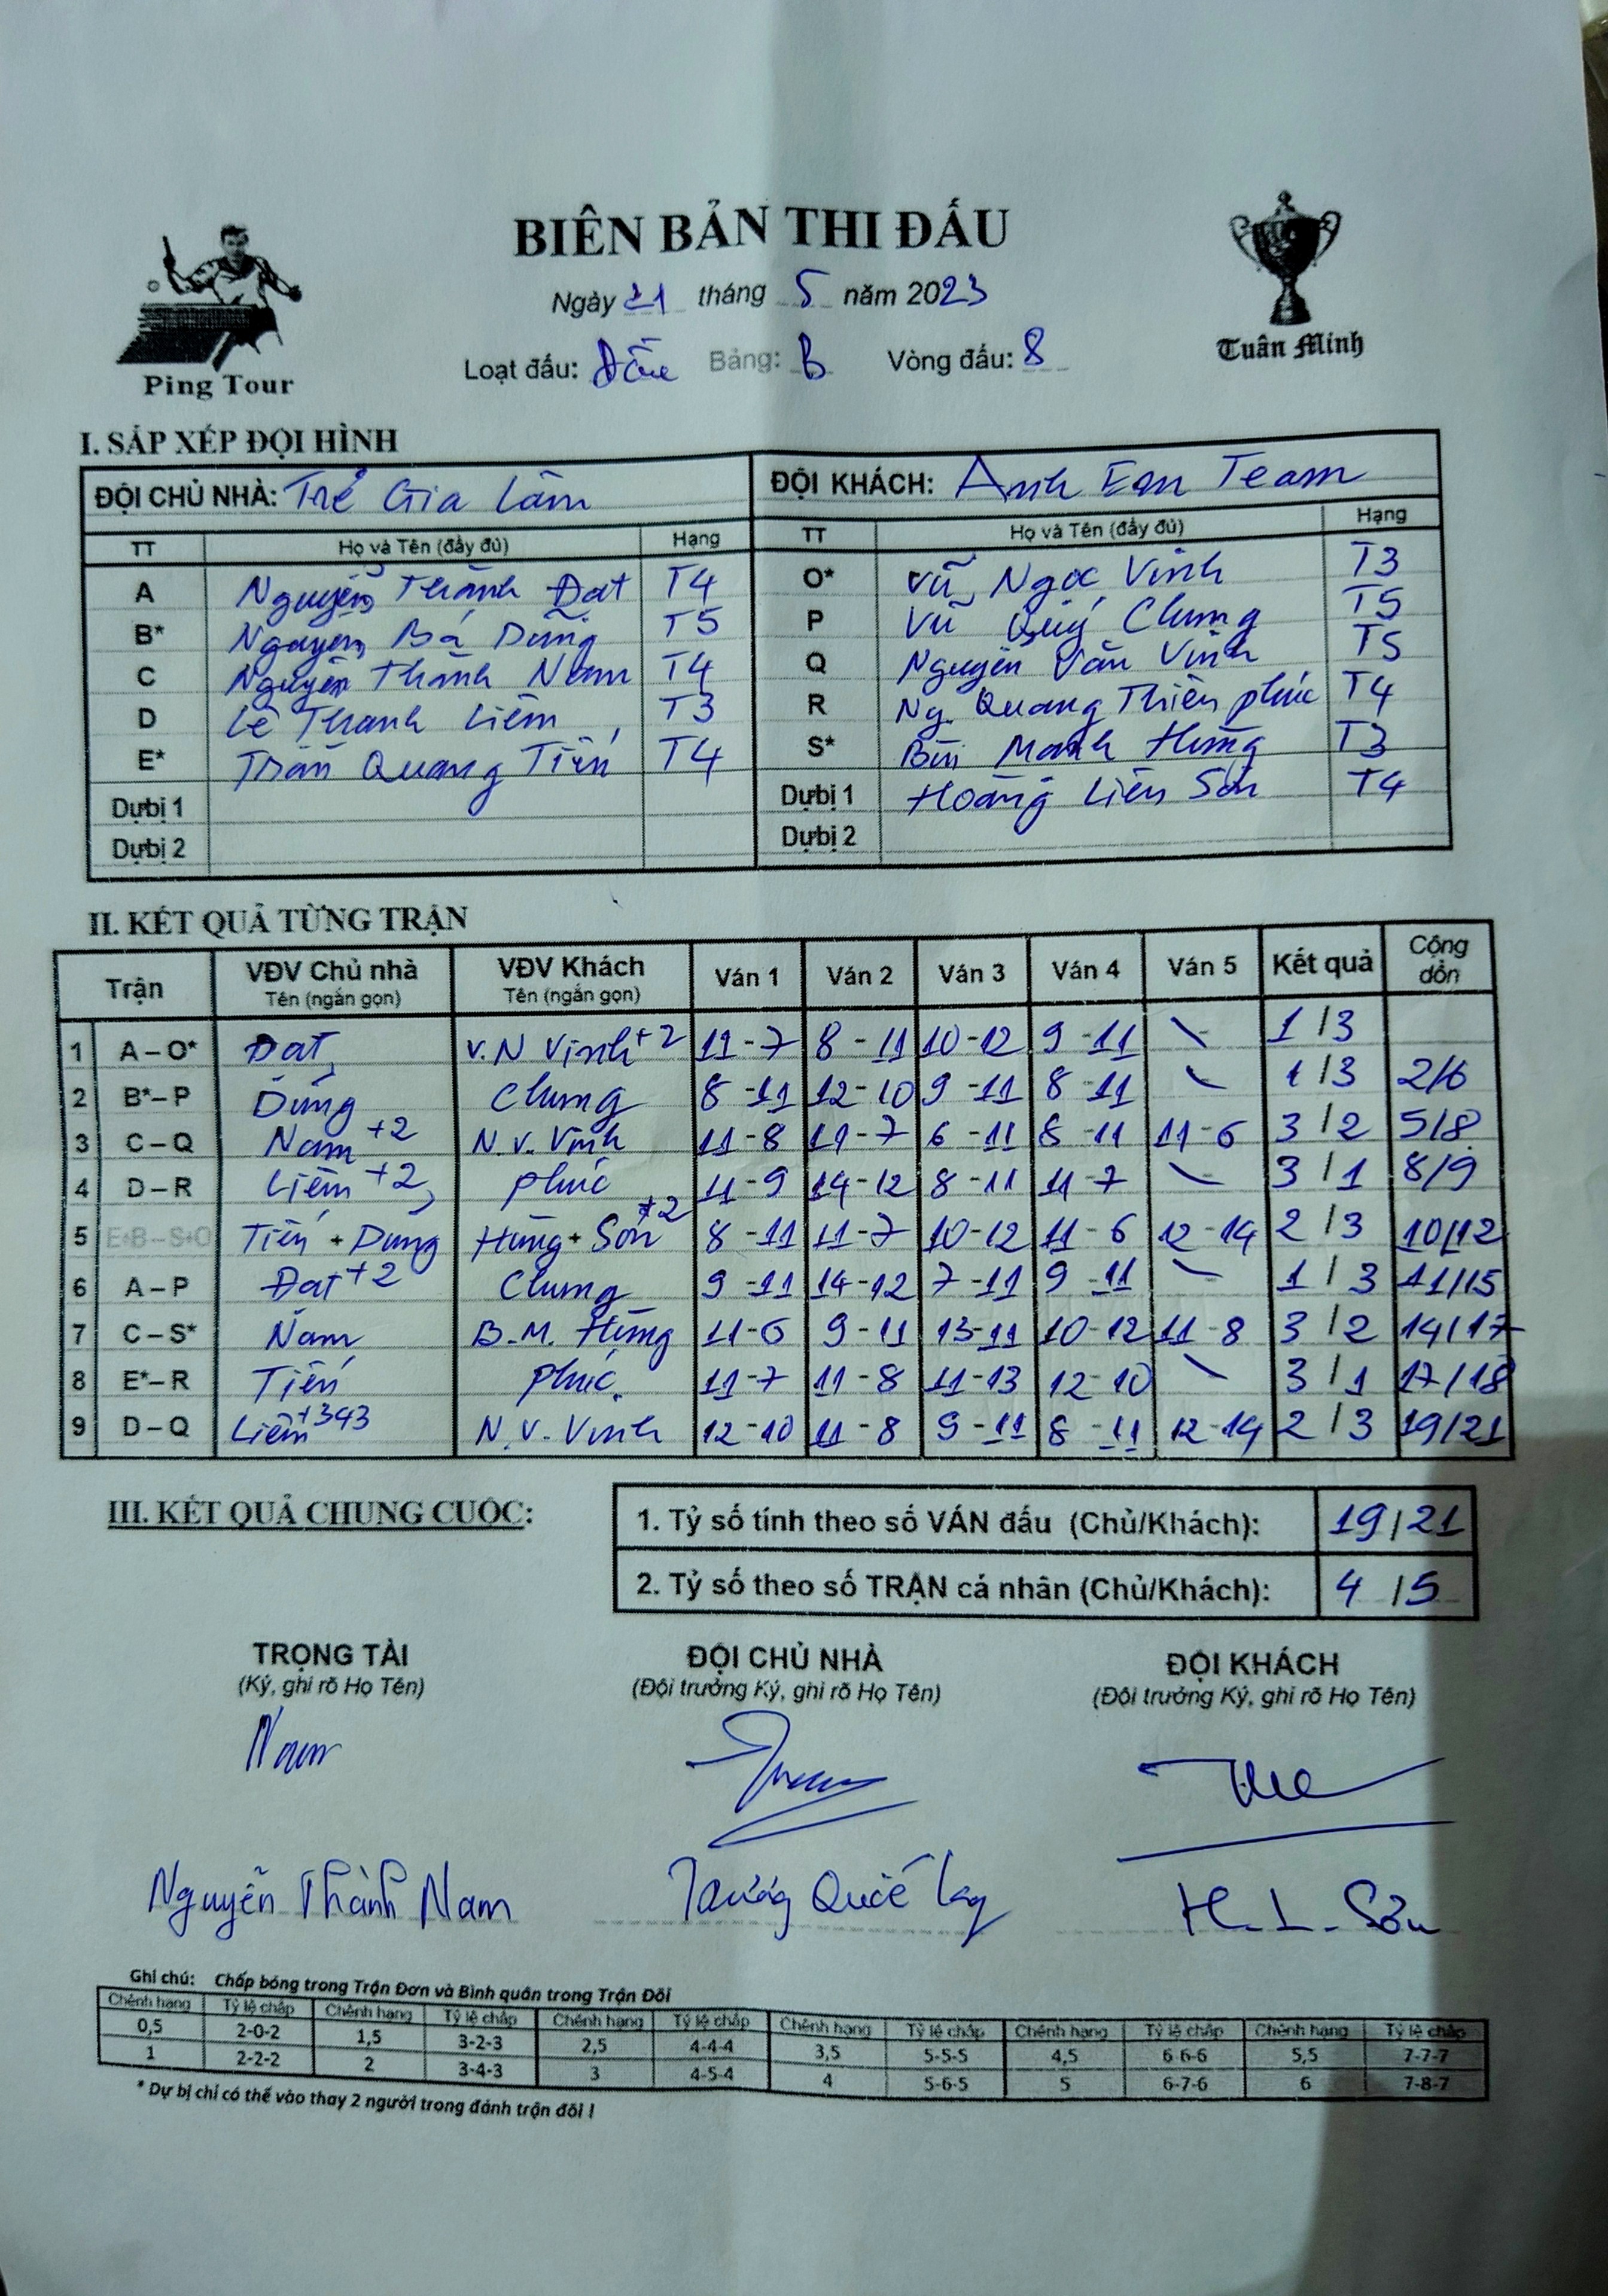 BIÊN BẢN THI ĐẤU
Ngày 21 tháng 5 năm 2023
Ping Tour
Tuấn Minh
Loạt đấu: Đầu Bảng: B Vòng đấu: 8
I. SẮP XẾP ĐỘI HÌNH
ĐỘI CHỦ NHÀ: Trẻ Gia Lâm ĐỘI KHÁCH: Anh Em Team
TT Họ và Tên (đầy đủ) Hạng TT Họ và Tên (đầy đủ) Hạng
A Nguyễn Thành Đạt T4 O* Vũ Ngọc Vinh T3
B* Nguyễn Bá Dũng T5 P Vũ Quý Chung T5
C Nguyễn Thành Nam T4 Q Nguyễn Văn Vinh T5
D Lê Thanh Liêm T3 R Ng. Quang Thiên Phúc T4
E* Trần Quang Tiến T4 S* Bùi Mạnh Hùng T3
Dự bị 1 Dự bị 1 Hoàng Liên Sơn T4
Dự bị 2 Dự bị 2
II. KẾT QUẢ TỪNG TRẬN
Trận VĐV Chủ nhà Tên (ngắn gọn) VĐV Khách Tên (ngắn gọn) Ván 1 Ván 2 Ván 3 Ván 4 Ván 5 Kết quả Cộng dồn
1 A – O* Đạt V.N Vinh +2 11-7 8-11 10-12 9-11 \ 1/3
2 B* – P Dũng Chung 8-11 12-10 9-11 8-11 \ 1/3 2/6
3 C – Q Nam +2 N.V. Vinh 11-8 11-7 6-11 8-11 11-6 3/2 5/8
4 D – R Liêm +2 Phúc 11-9 14-12 8-11 11-7 \ 3/1 8/9
5 E+B – S+O Tiến + Dũng Hùng + Sơn +2 8-11 11-7 10-12 11-6 12-14 2/3 10/12
6 A – P Đạt +2 Chung 9-11 14-12 7-11 9-11 \ 1/3 11/15
7 C – S* Nam B.M. Hùng 11-6 9-11 13-11 10-12 11-8 3/2 14/17
8 E* – R Tiến Phúc. 11-7 11-8 11-13 12-10 \ 3/1 17/18
9 D – Q Liêm +343 N.V. Vinh 12-10 11-8 9-11 8-11 12-14 2/3 19/21
III. KẾT QUẢ CHUNG CUỘC:
1. Tỷ số tính theo số VÁN đấu (Chủ/Khách): 19/21
2. Tỷ số theo số TRẬN cá nhân (Chủ/Khách): 4/5
TRỌNG TÀI ĐỘI CHỦ NHÀ ĐỘI KHÁCH
(Ký, ghi rõ Họ Tên) (Đội trưởng Ký, ghi rõ Họ Tên) (Đội trưởng Ký, ghi rõ Họ Tên)
Nam
Nguyễn Thành Nam H.L.Sơn
Ghi chú: Chấp bóng trong Trận Đơn và Bình quân trong Trận Đôi
Chênh hạng Tỷ lệ chấp Chênh hạng Tỷ lệ chấp Chênh hạng Tỷ lệ chấp Chênh hạng Tỷ lệ chấp Chênh hạng Tỷ lệ chấp Chênh hạng Tỷ lệ chấp
0,5 2-0-2 1,5 3-2-3 2,5 4-4-4 3,5 5-5-5 4,5 6 6-6 5,5 7-7-7
1 2-2-2 2 3-4-3 3 4-5-4 4 5-6-5 5 6-7-6 6 7-8-7
* Dự bị chỉ có thể vào thay 2 người trong đánh trận đôi !